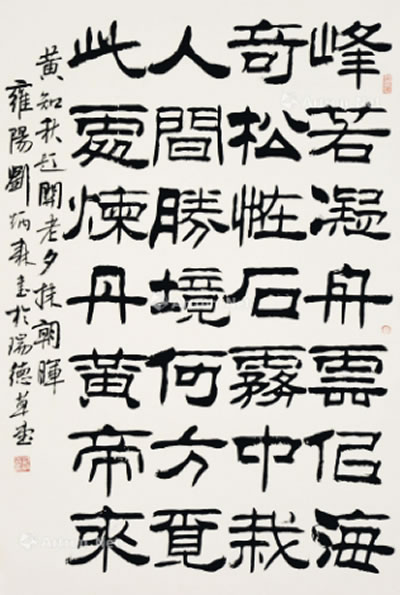 峰若凝舟雲佀海
奇松恠石霧中栽
人間勝境何方覓
此處煉丹黃帝來
黃知秋老夕朝暉
雍陽劉炳森書於瑞德草堂